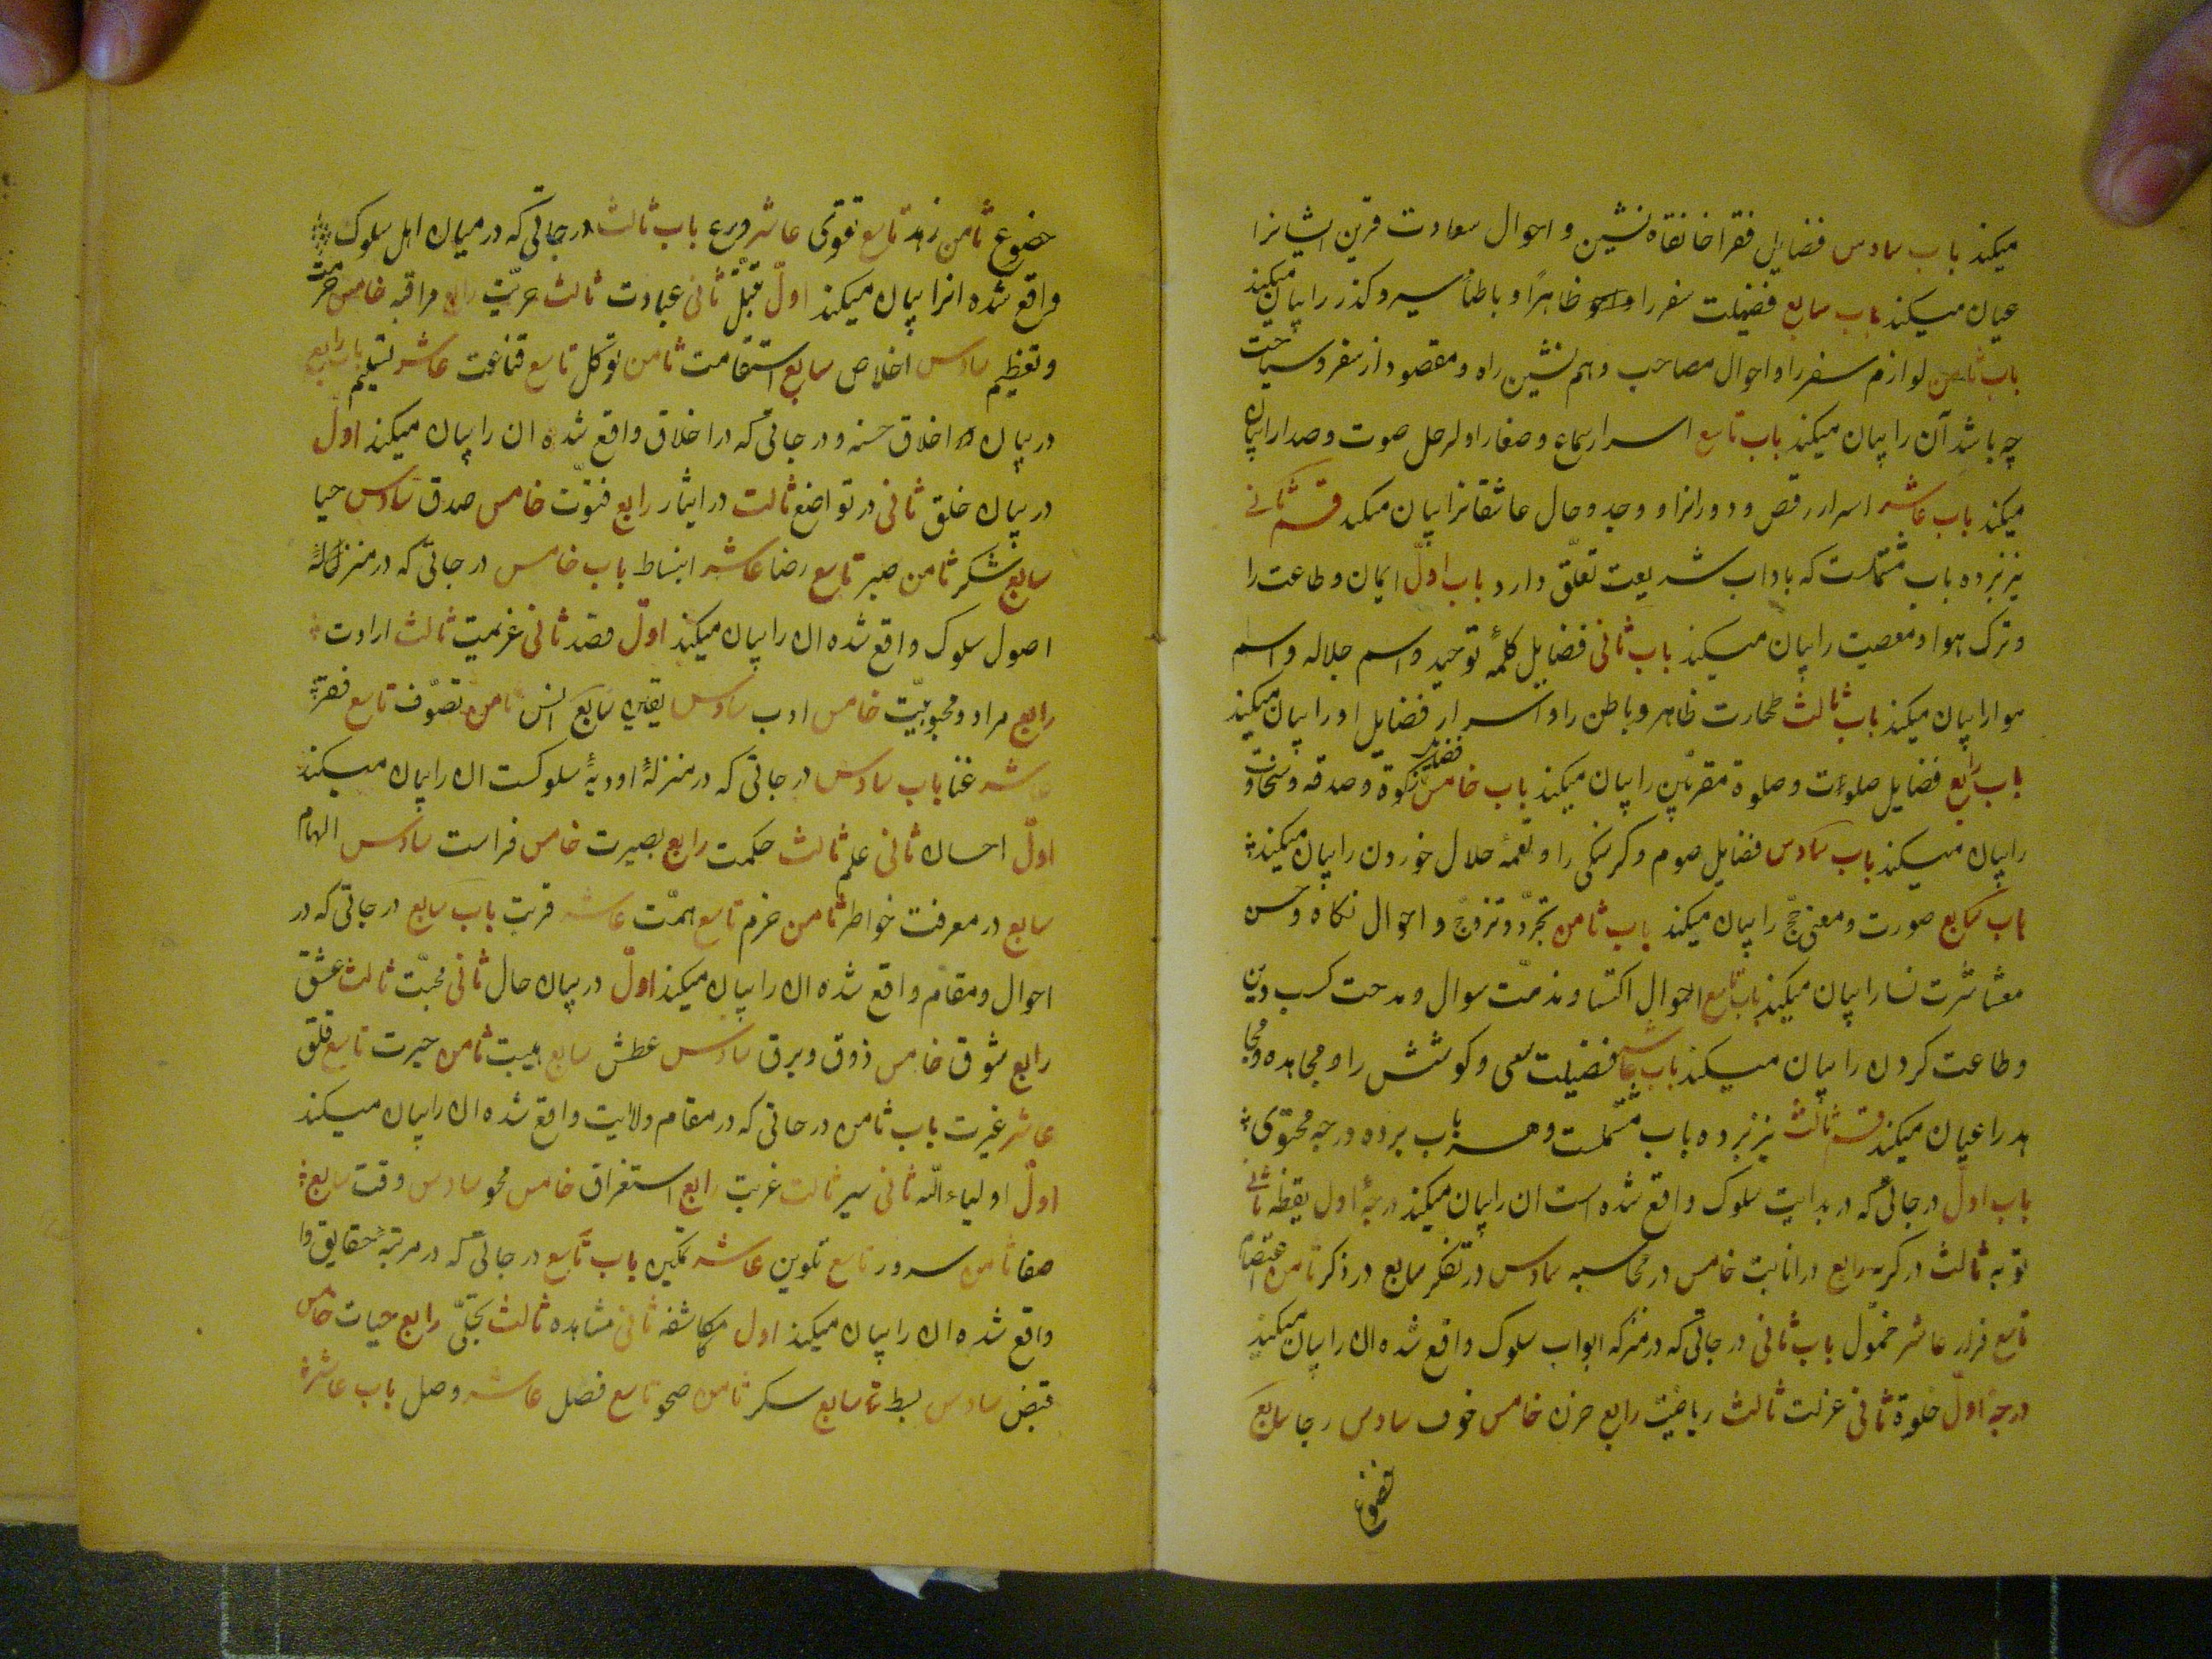 میکند باب سادس فضایل فقرا خانقاه نشین و احوال سعادت قرین ایشانرا
عیان میکند باب سابع فضیلت سفر را و ظاهرًا و باطنًا سیر و کذر را بیان میکند
باب ثامن لوازم سفر را و احوال مصاحب و هم نشین راه و مقصود از سفر و سیاحت
چه باشد آن را بیان میکند باب تاسع اسرار سماع و صفا را و لر حل صوت و صدا را بیان
میکند باب عاشر اسرار رقص و دورانرا و وجد و حال عاشقانرا بیان میکند قسم ثانی
نیز برده باب مشتملست که باداب شریعت تعلّق دارد باب اوّل ایمان و طاعت را
و ترک هوا و معصیت را بیان میکند باب ثانی فضایل کلمهٔ توحید و اسم جلاله و اسم
هو را بیان میکند باب ثالث طهارت ظاهر و باطن را و اسرار فضایل او را بیان میکند
باب رابع فضایل صلوٰت و صلوة مقربین را بیان میکند باب خامس فضایل زکوة و صدقه و سخاوت
را بیان میکند باب سادس فضایل صوم و کرسنکی را و لقمهٔ حلال خوردن را بیان میکند
باب سابع صورت و معنی حجّ را بیان میکند باب ثامن تجرّد و تزوّج و احوال نکاه و حسن
معاشرت نسا را بیان میکند باب تاسع احوال اکتسا و مذمّت سوال و مدحت کسب دین
و طاعت کردن را بیان میکند باب عاشر فضیلت سعی و کوشش را و مجاهده و مجا
هد را عیان میکند قسم ثالث نیز برده باب مشتملست و هر باب برده درجه محتوی
باب اوّل درجاتی که در بدایت سلوک واقع شده است ان را بیان میکند درجهٔ اول یقظه ثانی
توبه ثالث در کریه رابع در انابت خامس در محاسبه سادس در تفکر سابع در ذکر ثامن اعتصام
تاسع فرار عاشر خموّل باب ثانی درجاتی که در منزله ابواب سلوک واقع شده ان را بیان میکند
درجهٔ اوّل خلوة ثانی عزلت ثالث ریاضت رابع حزن خامس خوف سادس رجا سابع
خضوع
خضوع ثامن زهد تاسع تقوی عاشر ورع باب ثالث درجاتی که در میان اهل سلوک
واقع شده انرا بیان میکند اوّل تبتّل ثانی عبادت ثالث حریّت رابع مراقبه خامس حرمت
و تعظیم سادس اخلاص سابع استقامت ثامن توکل تاسع قناعت عاشر تسلیم باب رابع
در بیان اخلاق حسنه و درجاتی که در اخلاق واقع شده ان را بیان میکند اوّل
در بیان خلق ثانی در تواضع ثالث در ایثار رابع فتوّت خامس صدق سادس حیا
سابع شکر ثامن صبر تاسع رضا عاشر انبساط باب خامس درجاتی که در منزلهٔ
اصول سلوک واقع شده ان را بیان میکند اوّل قصد ثانی عزیمت ثالث ارادت
رابع مراد و محبوبیّت خامس ادب سادس یقین سابع انس ثامن تصوّف تاسع فقر
عاشر غنا باب سادس درجاتی که در منزلهٔ اودیهٔ سلوکست ان را بیان میکند
اوّل احسان ثانی علم ثالث حکمت رابع بصیرت خامس فراست سادس الهام
سابع در معرفت خواطر ثامن حزم تاسع همّت عاشر قربت باب سابع درجاتی که در
احوال و مقام واقع شده ان را بیان میکند اوّل در بیان حال ثانی محبّت ثالث عشق
رابع شوق خامس ذوق و برق سادس عطش سابع هیبت ثامن حیرت تاسع قلق
عاشر غیرت باب ثامن درجاتی که در مقام ولایت واقع شده ان را بیان میکند
اوّل اولیاء الله ثانی سیر ثالث غربت رابع استغراق خامس محو سادس وقت سابع
صفا ثامن سرور تاسع تلوین عاشر تمکین باب تاسع درجاتی که در مرتبهٔ حقایق وا
واقع شده ان را بیان میکند اول مکاشفه ثانی مشاهده ثالث تجلّی رابع حیات خامس
قبض سادس بسط سابع سکر ثامن صحو تاسع فصل عاشر وصل باب عاشر